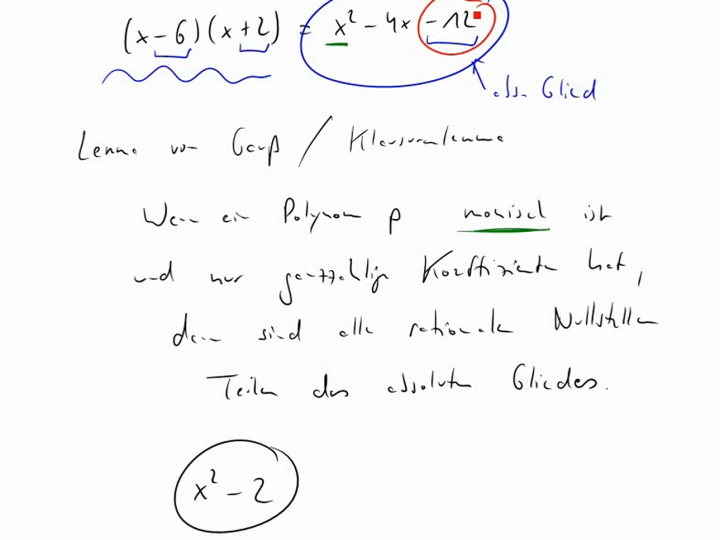 (x - 6)(x + 2) = x² - 4x - 12
abs. Glied
Lemma von Gauß / Klausurenlemma
Wenn ein Polynom p monisch ist
und nur ganzzahlige Koeffizienten hat,
dann sind alle rationalen Nullstellen
Teiler des absoluten Gliedes.
x² - 2